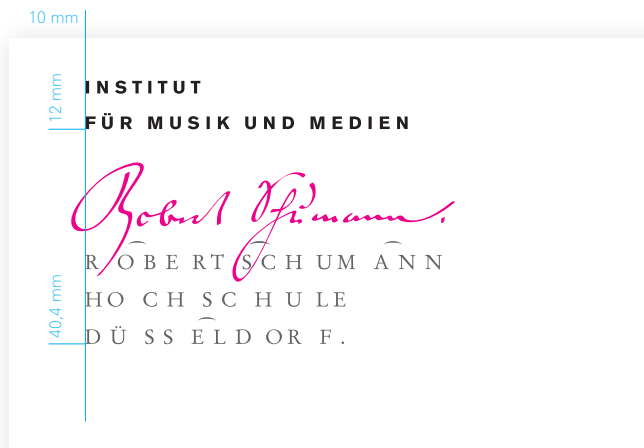 10 mm
12 mm
INSTITUT
FÜR MUSIK UND MEDIEN
Robert Schumann.
ROBERT SCHUMANN
HOCHSCHULE
DÜSSELDORF.
40,4 mm